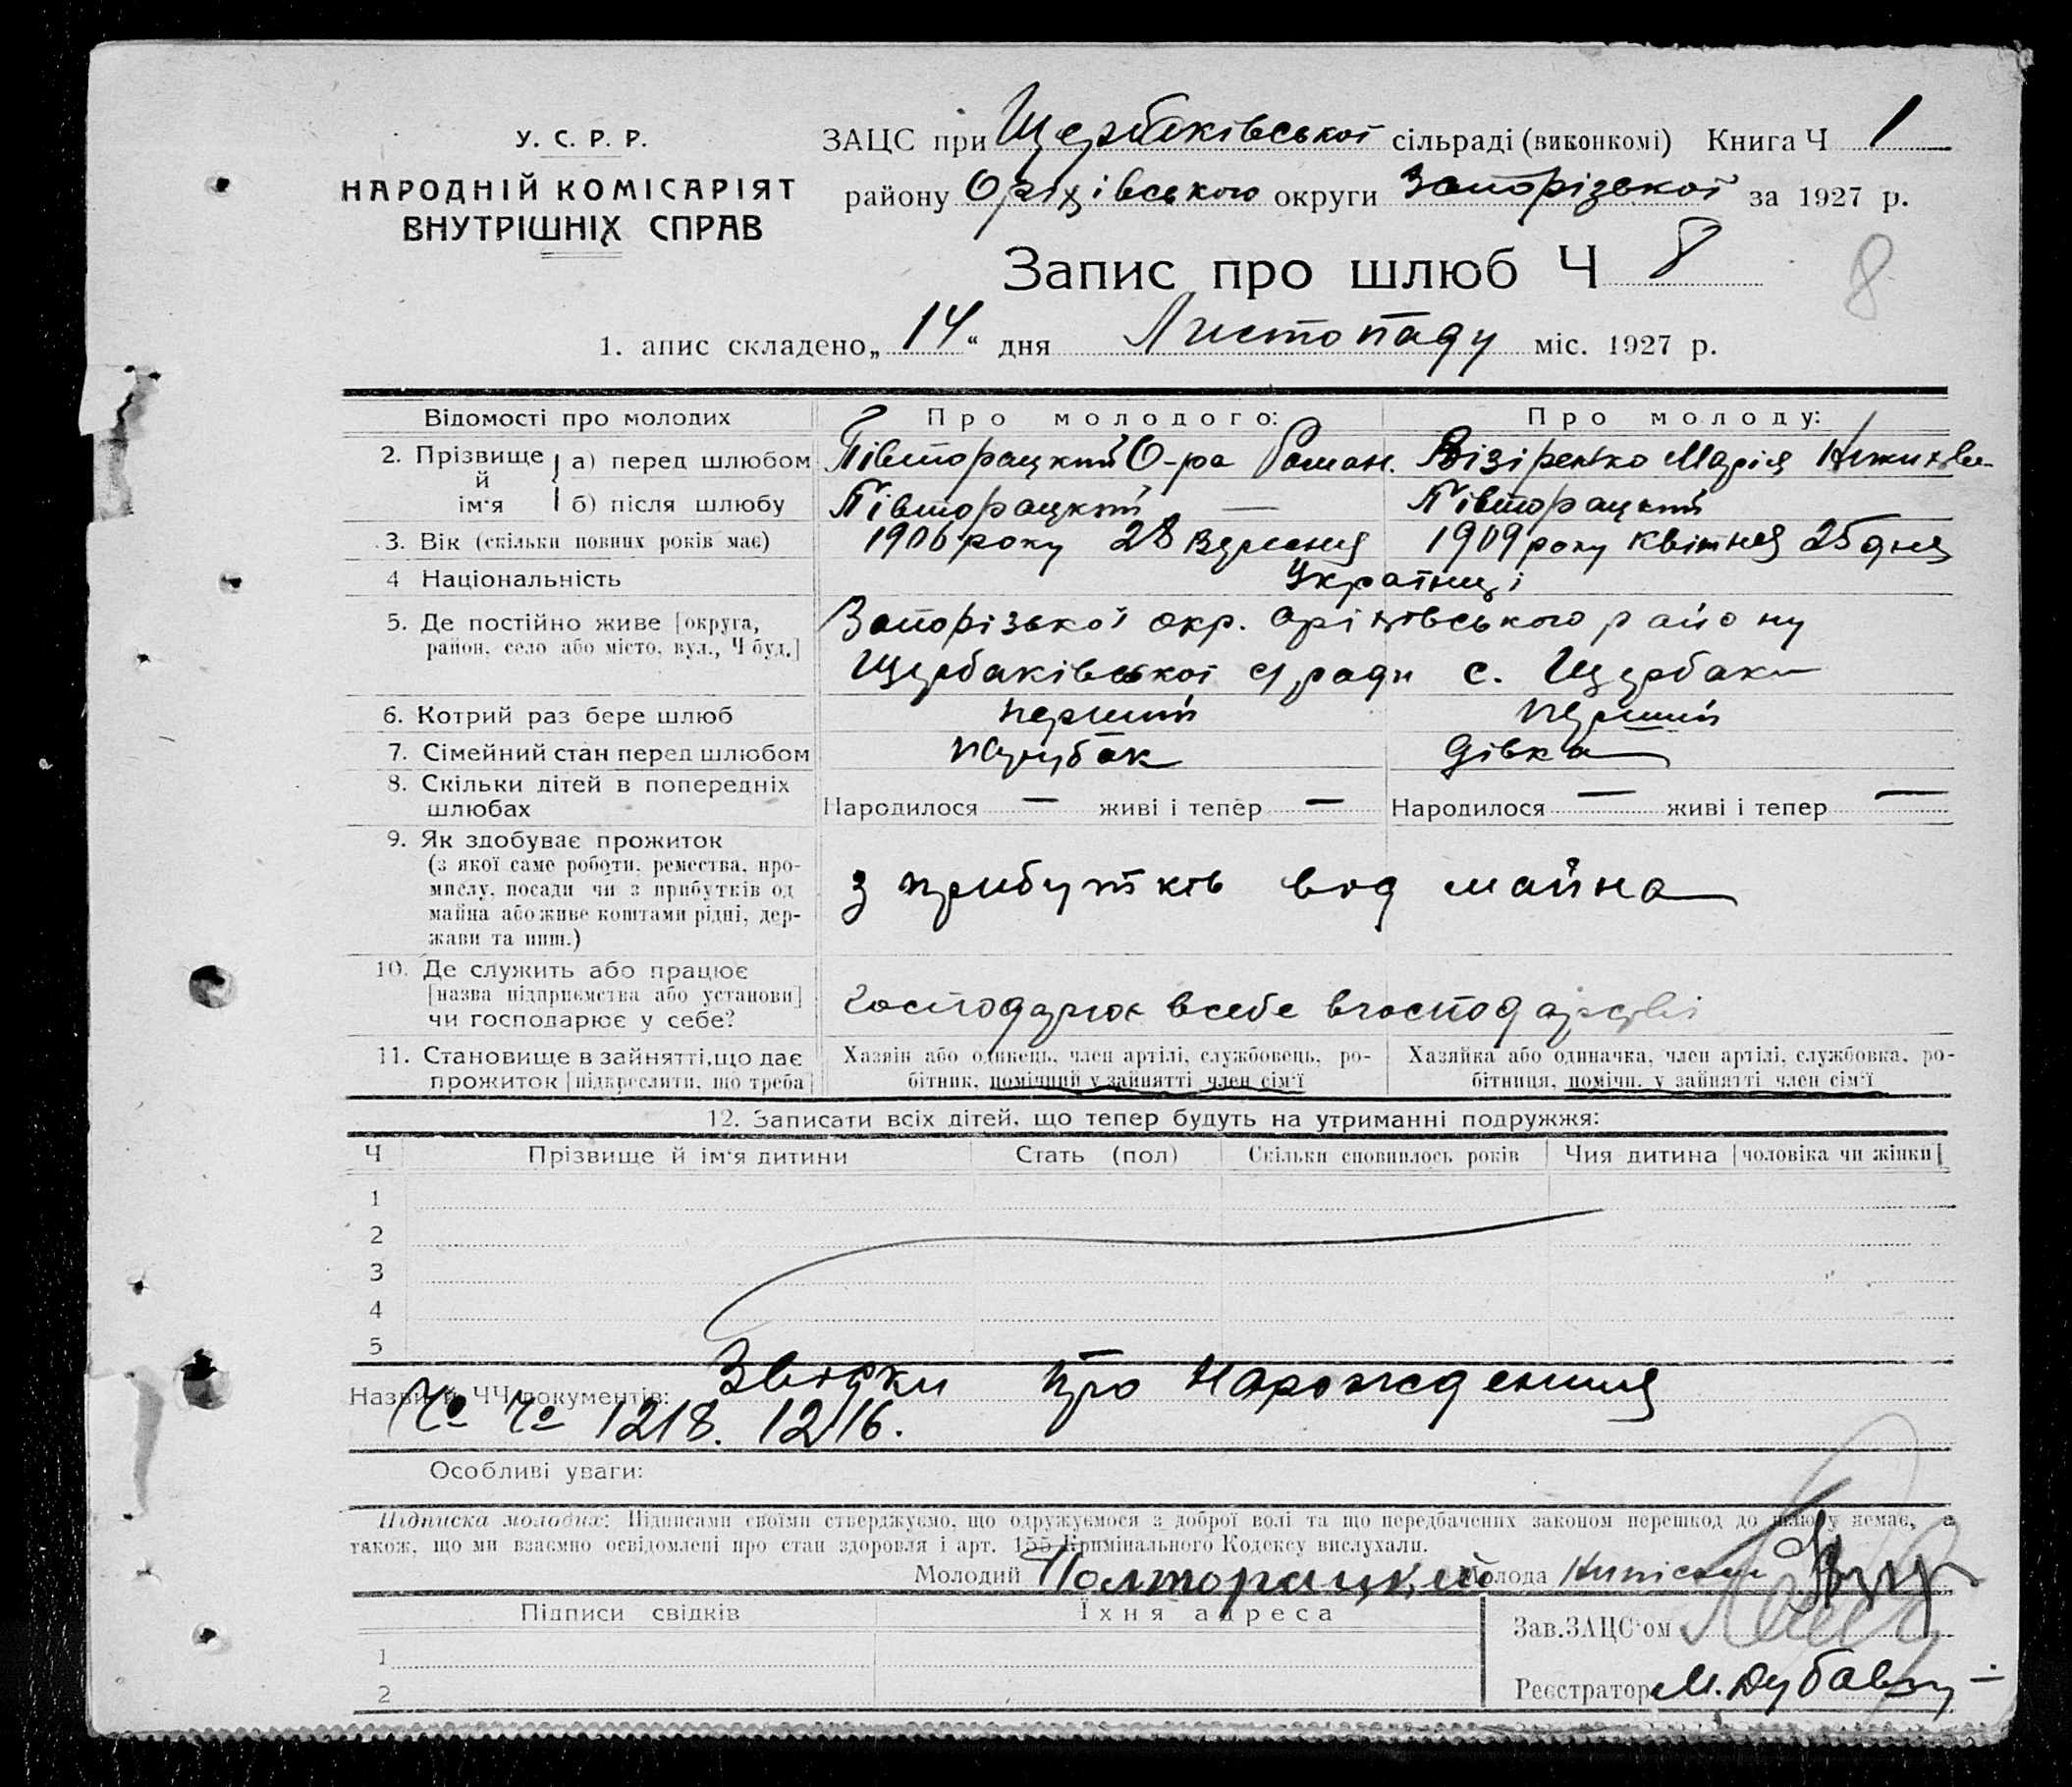 У. С. Р. Р.
НАРОДНІЙ КОМІСАРІЯТ
ВНУТРІШНІХ СПРАВ
ЗАЦС при Щербаківської сільраді (виконкомі) Книга Ч 1
району Оріхівського округи Запорізької за 1927 р.
Запис про шлюб Ч 8
8
1. апис складено „14“ дня Листопаду міс. 1927 р.
Відомості про молодих Про молодого: Про молоду:
2. Прізвище й ім'я а) перед шлюбом Півторацкий Роман. Візіренко Марія
б) після шлюбу Півторацкий — Півторацкий
3. Вік (скільки повних років має) 1906 року 28 Вересня 1909 року квітня 25 дня
4 Національність Українці
5. Де постійно живе [округа, Запорізької окр. Оріхівського району
район, село або місто, вул., Ч буд.] Щербаківської с/ради с. Щербаки
6. Котрий раз бере шлюб перший перший
7. Сімейний стан перед шлюбом парубак дівка
8. Скільки дітей в попередніх
шлюбах Народилося — живі і тепер — Народилося — живі і тепер —
9. Як здобуває прожиток
(з якої саме роботи, ремества, про-
мислу, посади чи з прибутків од
майна або живе коштами рідні, дер-
жави та инш.)
з прибутків від майна
10. Де служить або працює
[назва підприємства або установи]
чи господарює у себе?
господарює всебе вгосподарстві
11. Становище в зайнятті, що дає Хазяїн або одинець, член артілі, службовець, ро- Хазяйка або одиначка, член артілі, службовка, ро-
прожиток [підкреслити, що треба] бітник, помічний у зайнятті член сім'ї бітниця, помічн. у зайнятті член сім'ї
12. Записати всіх дітей, що тепер будуть на утриманні подружжя:
Ч Прізвище й ім'я дитини Стать (пол) Скільки сповнилось років Чия дитина [чоловіка чи жінки[
1
2
3
4
5
Назви й ЧЧ документів: Звідки про Нарождения
№ № 1218. 1216.
Особливі уваги:
Підписка молодих: Підписами своїми стверджуємо, що одружуємося з доброї волі та що передбачених законом перешкод до шлюбу немає, а
також, що ми взаємно освідомлені про стан здоровля і арт. 155 Кримінального Кодексу вислухали.
Молодий Полторацкий Молода
Підписи свідків Їхня адреса
Зав. ЗАЦС'ом
1
2
Реєстратор М.